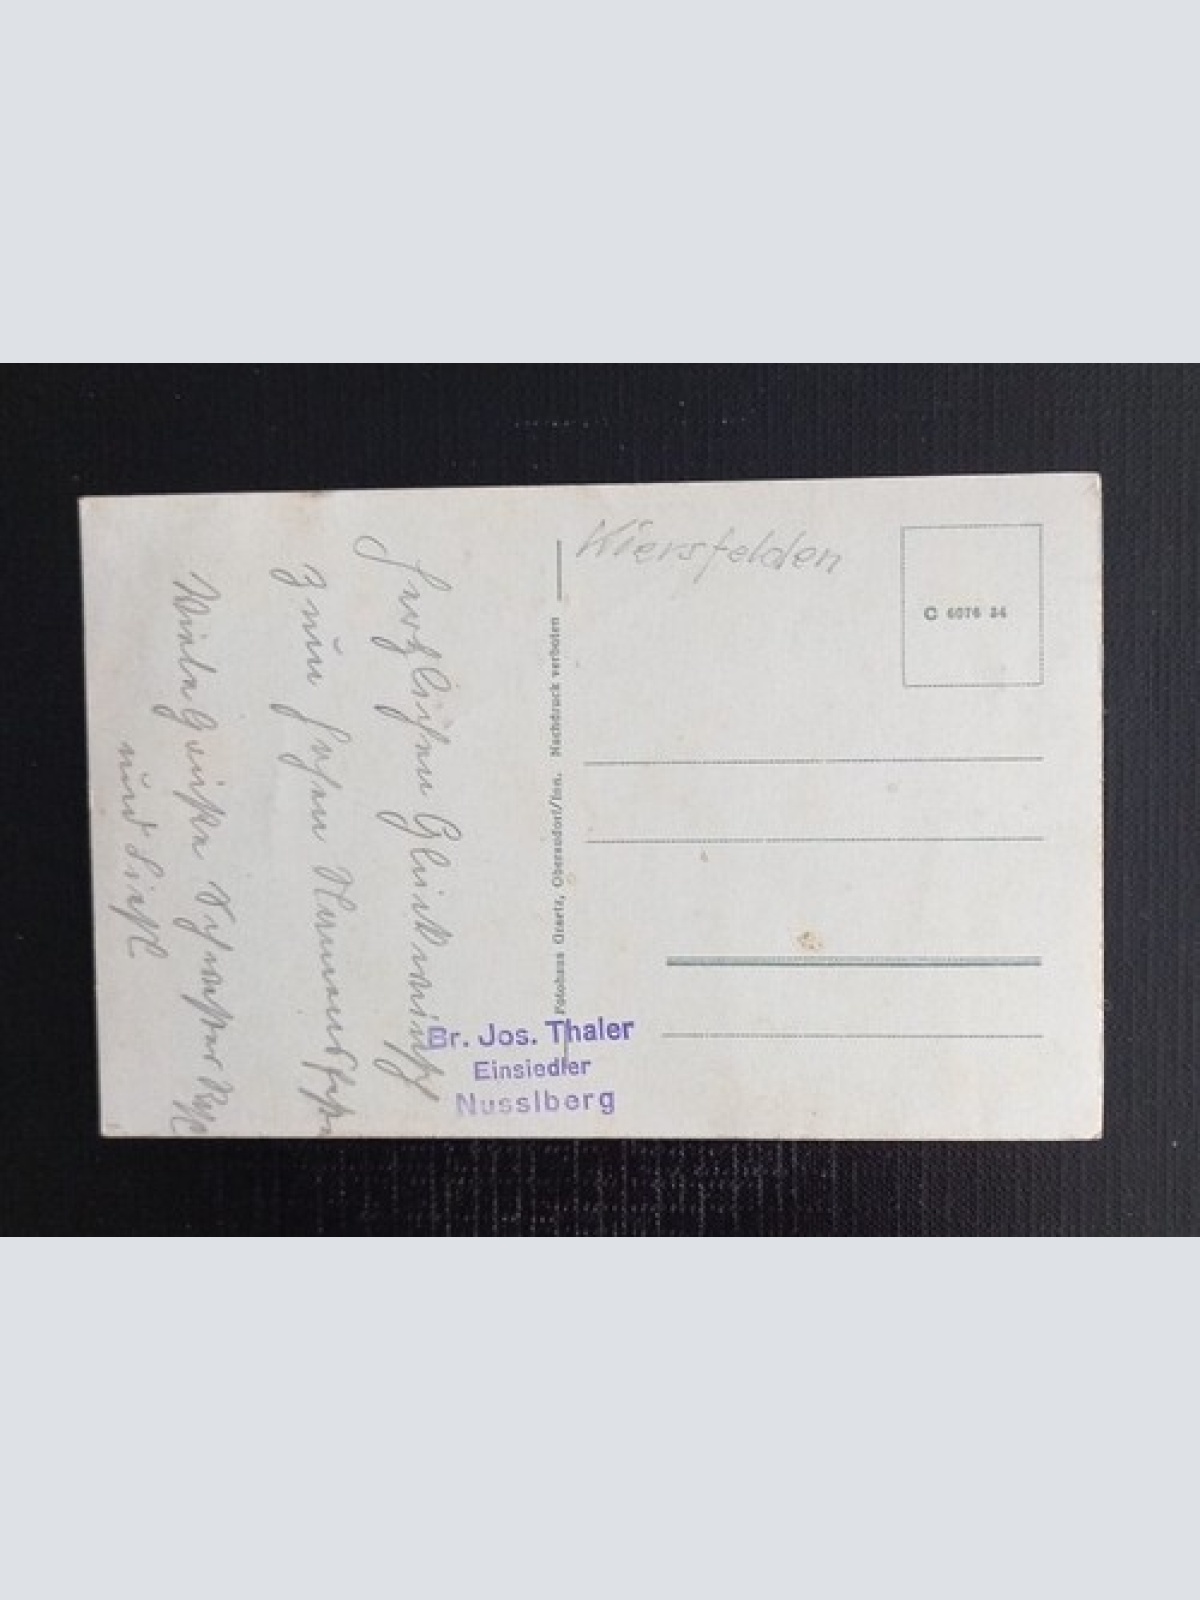 Herzlichen Glückwunsch
zum hohen Namensfeste
Viele Grüße Schwester Resl
und Liesl
Fotohaus Graetz, Oberaudorf/Inn. Nachdruck verboten
Kiersfelden
C 6076 34
Br. Jos. Thaler
Einsiedler
Nusslberg